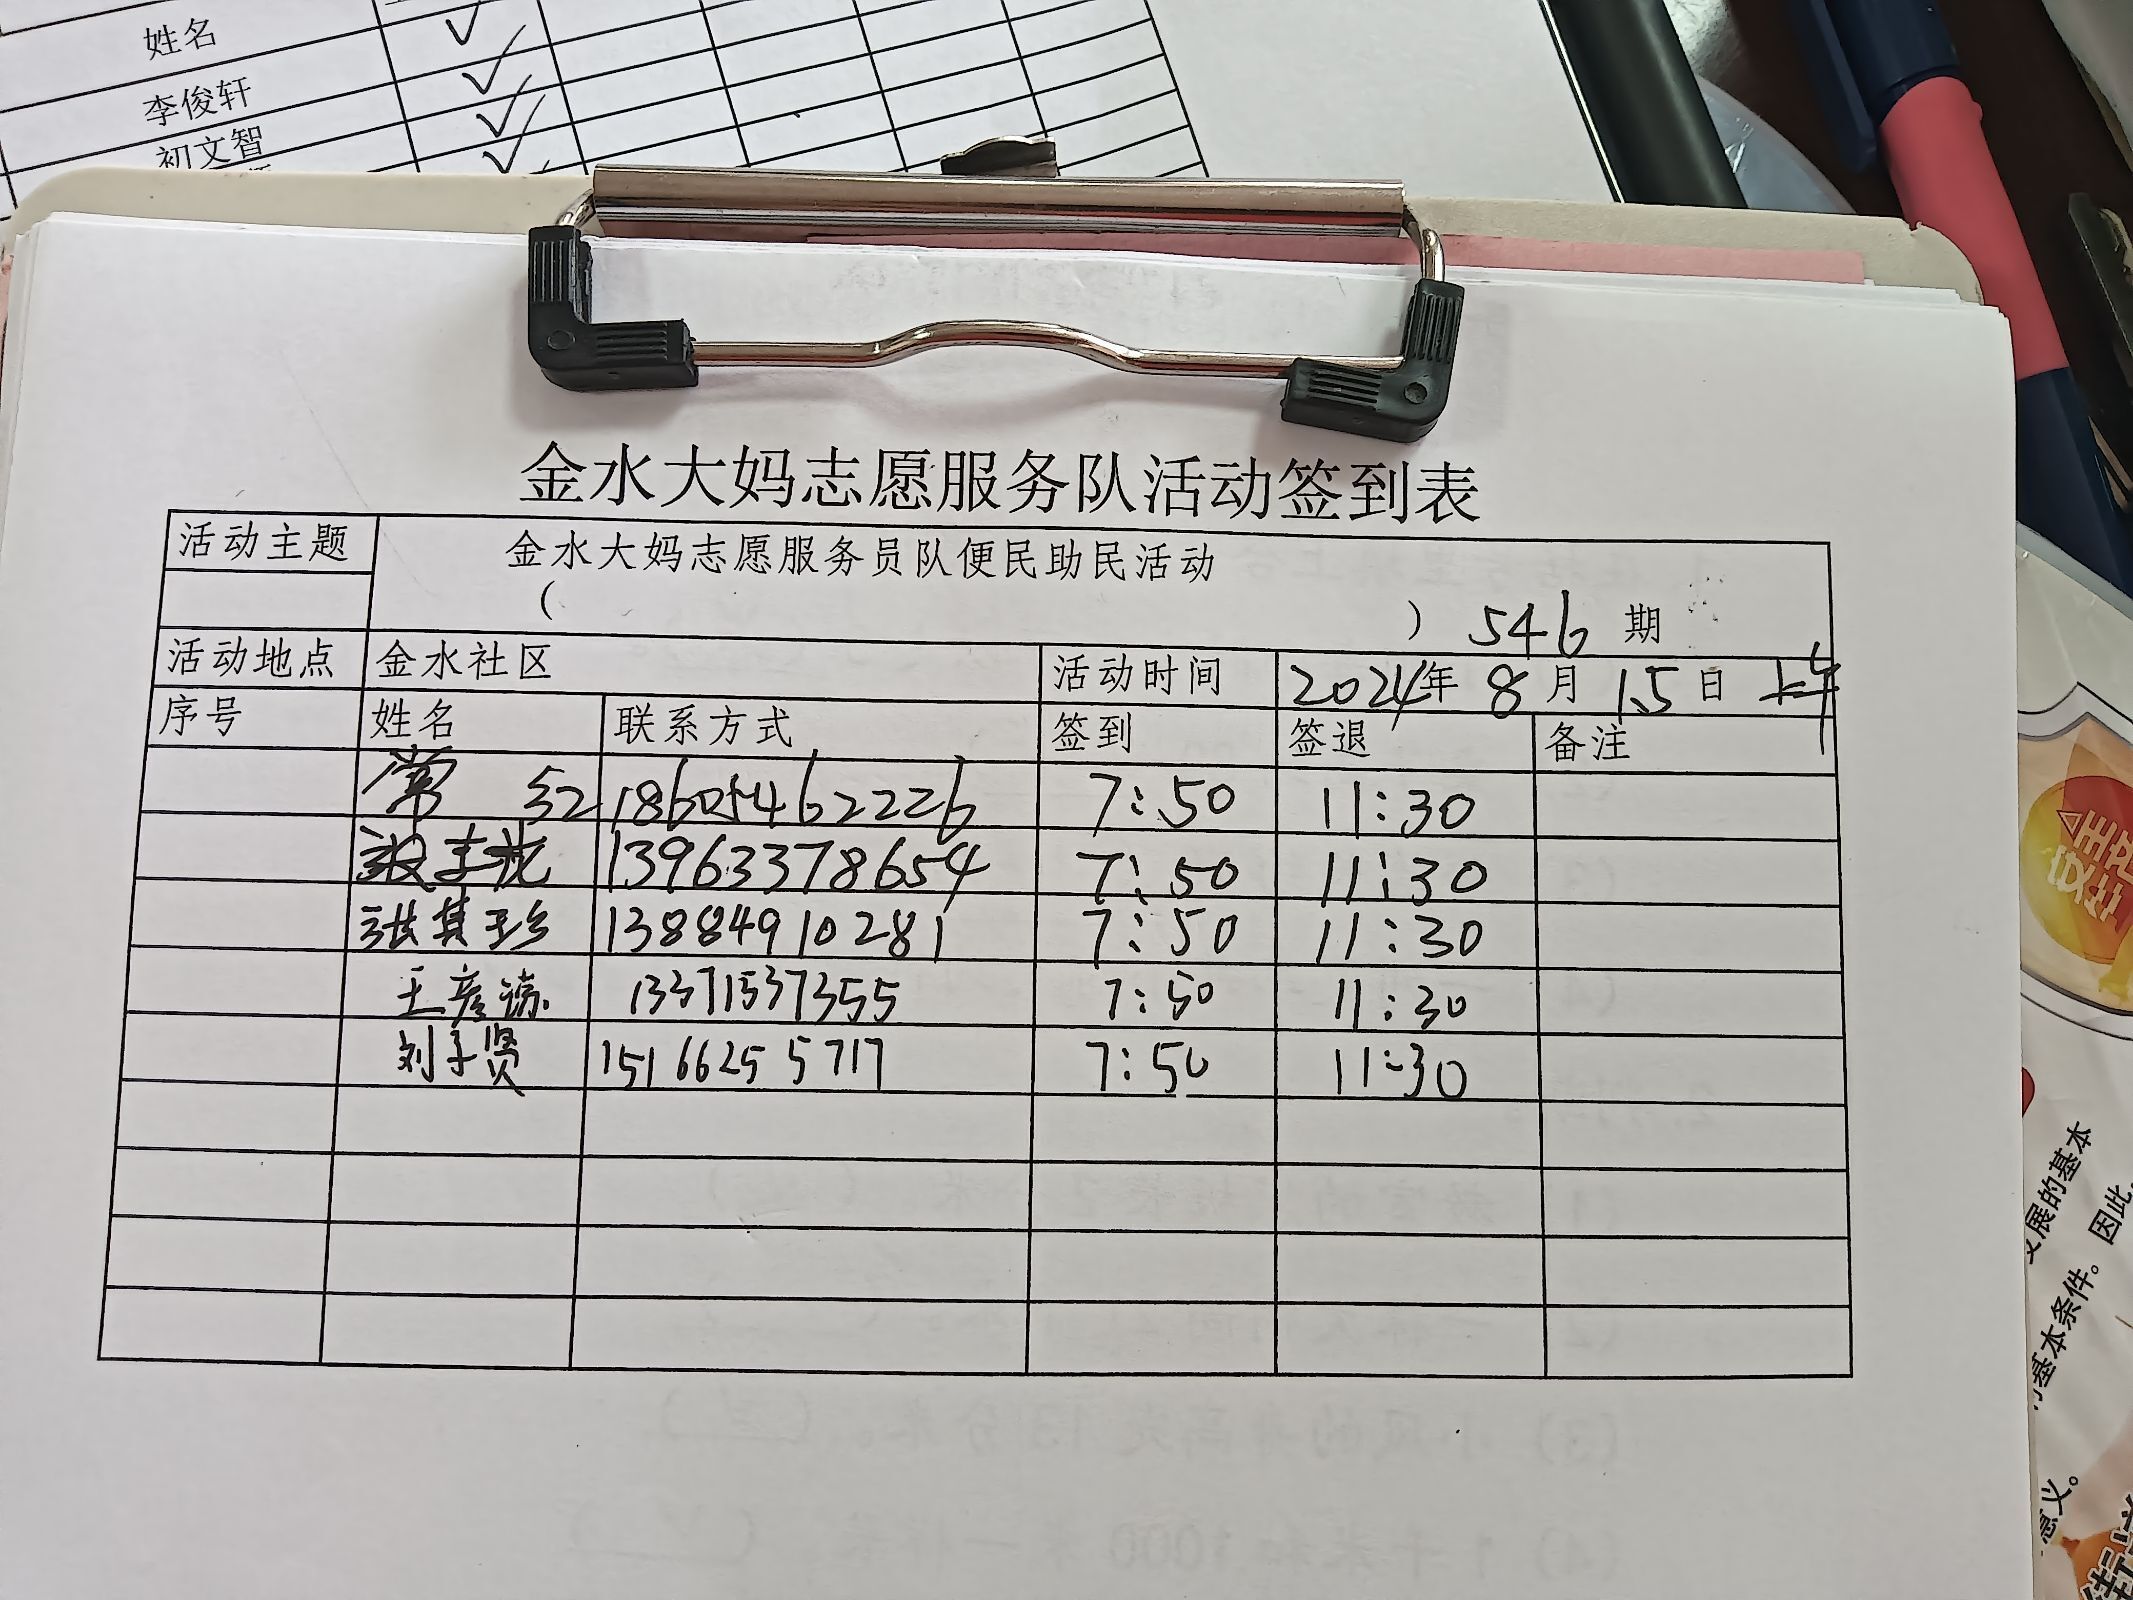 姓名
李俊轩
初文智
金水大妈志愿服务队活动签到表
活动主题 金水大妈志愿服务员队便民助民活动
( ) 546 期
活动地点 金水社区 活动时间 2024年 8月 15日 上午
序号 姓名 联系方式 签到 签退 备注
常红 18605462226 7:50 11:30
13963378654 7:50 11:30
张其珍 13884910281 7:50 11:30
王彦 13371537355 7:50 11:30
刘子贤 15166255717 7:50 11:30
发展的基本
的基本条件。因此,
意义。